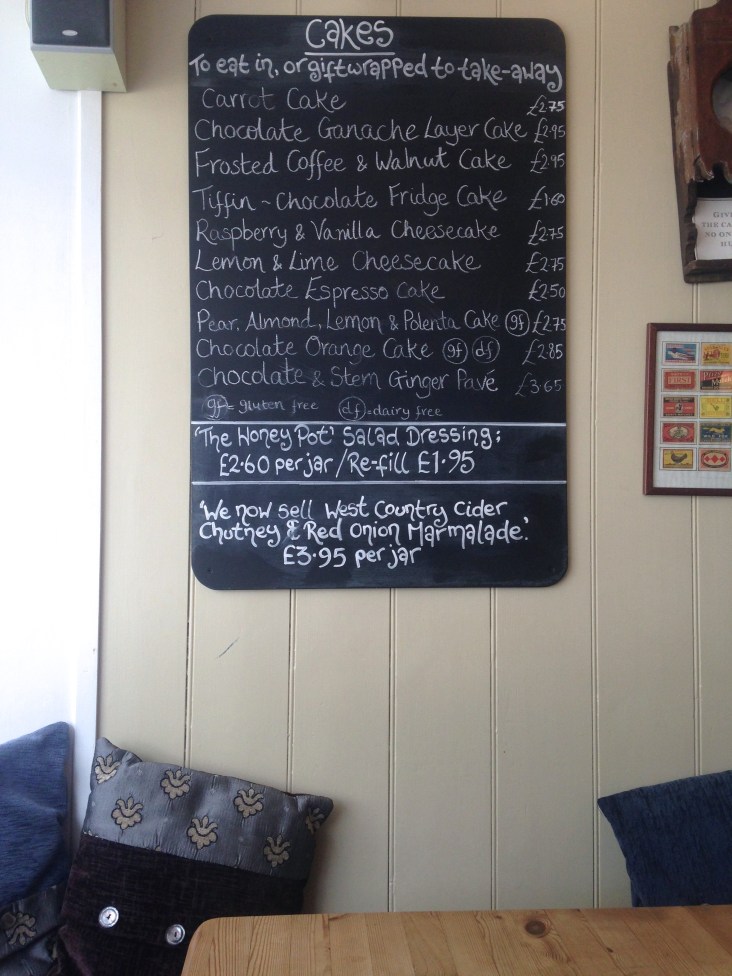 Cakes
To eat in, or giftwrapped to take-away
Carrot Cake £2.75
Chocolate Ganache Layer Cake £2.95
Frosted Coffee & Walnut Cake £2.95
Tiffin - Chocolate Fridge Cake £1.60
Raspberry & Vanilla Cheesecake £2.75
Lemon & Lime Cheesecake £2.75
Chocolate Espresso Cake £2.50
Pear, Almond, Lemon & Polenta Cake gf £2.75
Chocolate Orange Cake gf df £2.85
Chocolate & Stem Ginger Pavé £3.65
gf = gluten free df = dairy free
'The Honey Pot' Salad Dressing:
£2.60 per jar/Re-fill £1.95
'We now sell West Country Cider
Chutney & Red Onion Marmalade.'
£3.95 per jar
THE
NO